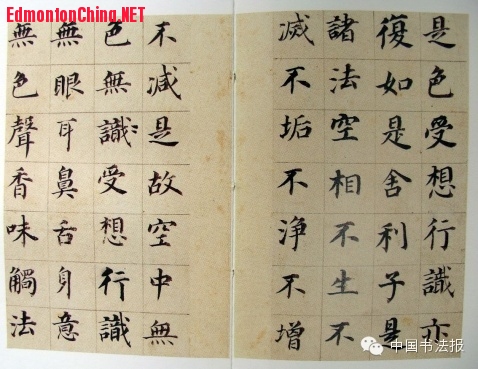 EdmontonChina.NET
是色受想行識亦
復如是舍利子是
諸法空相不生不
滅不垢不淨不增
不減是故空中無
色無識受想行識
無眼耳鼻舌身意
無色聲香味觸法
中国书法报